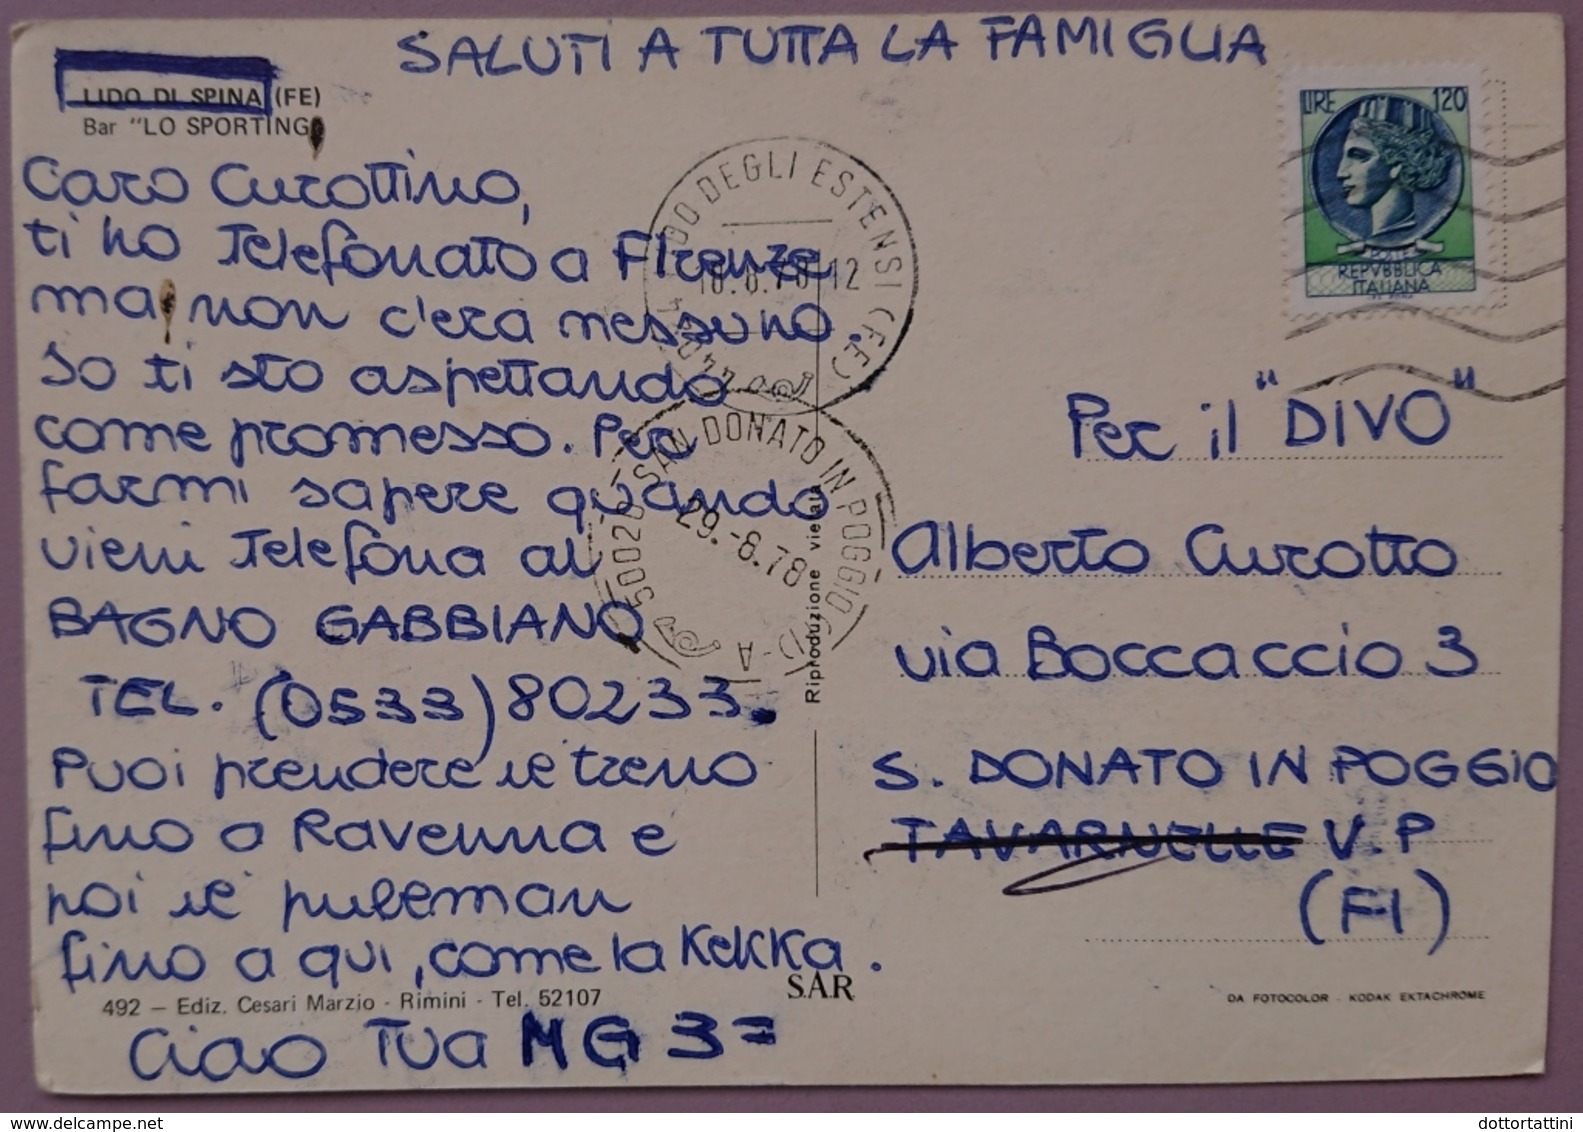 SALUTI A TUTTA LA FAMIGLIA
LIDO DI SPINA (FE)
Bar "LO SPORTING"
Caro Curottino,
ti ho telefonato a Firenze
ma non c'era nessuno.
Io ti sto aspettando
come promesso. Per
farmi sapere quando
vieni telefona al
BAGNO GABBIANO
TEL. (0533) 80233.
Puoi prendere il treno
fino a Ravenna e
poi il pullman
fino a qui, come la Kekka.
492 – Ediz. Cesari Marzio - Rimini - Tel. 52107
Ciao Tua
LIRE 120
POSTE
REPVBBLICA
ITALIANA
DEGLI ESTENSI (FE)
SAN DONATO IN POGGIO (FI) - A
50020
29.-8.78
Riproduzione vietata
Per il "DIVO"
Alberto Curotto
via Boccaccio 3
S. DONATO IN POGGIO
TAVARNELLE V.P
(FI)
SAR
DA FOTOCOLOR - KODAK EKTACHROME
dottortattini